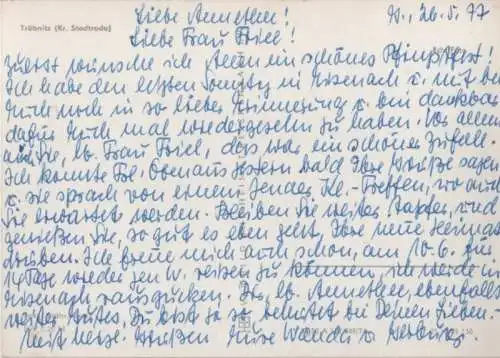 Tröbnitz (Kr. Stadtroda)
Liebe Annethem! N., 26.5.77
Liebe Frau Friel!
Zuerst wünsche ich Ihnen ein schönes Pfingstfest!
Ich habe den letzten Sonntag in Eisenach u. mit
Euch noch in so lieber Erinnerung u. bin dankbar
dafür Euch mal wiedergesehn zu haben. Vor allem
auch Sie, lb. Frau Friel, das war ein schöner Zufall.
Ich konnte Frl. gestern bald Ihre Grüße sagen
u. sie sprach von einem Jenaer Kl.-Treffen, wo auch
Sie erwartet werden. Bleiben Sie weiter tapfer, und
genießen Sie, so gut es eben geht, Ihre neue Heimat
drüben. Ich freue mich auch schon, am 10.6. für
14 Tage wieder gen W. reisen zu können, ich werde in
Eisenach rausgucken. Dir, lb. Annethem, ebenfalls
weiter Gutes. Du bist ja so behütet bei Deinen Lieben.-
Mit herzl. Grüßen Eure Wanda u.